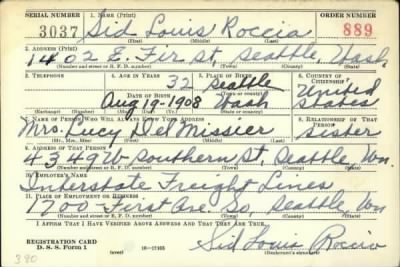 SERIAL NUMBER 1. NAME (Print) ORDER NUMBER
3037 Sid Louis Roccia 889
(First) (Middle) (Last)
2. ADDRESS (Print)
1402 E. Fir St, Seattle, Wash.
(Number and street or R. F. D. number) (Town) (County) (State)
3. TELEPHONE 4. AGE IN YEARS 5. PLACE OF BIRTH 6. COUNTRY OF CITIZENSHIP
32 Seattle United
DATE OF BIRTH (Town or county)
Aug 19-1908 Wash States
(Exchange) (Number) (Mo.) (Day) (Yr.) (State or country)
7. NAME OF PERSON WHO WILL ALWAYS KNOW YOUR ADDRESS 8. RELATIONSHIP OF THAT PERSON
Mrs. Lucy Del Missier sister
(Mr., Mrs., Miss) (First) (Middle) (Last)
9. ADDRESS OF THAT PERSON
4349 W Southern St, Seattle Wn.
(Number and street or R. F. D. number) (Town) (County) (State)
10. EMPLOYER'S NAME
Interstate Freight Lines
11. PLACE OF EMPLOYMENT OR BUSINESS
1700 First Ave. So, Seattle, Wn
(Number and street or R. F. D. number) (Town) (County) (State)
I AFFIRM THAT I HAVE VERIFIED ABOVE ANSWERS AND THAT THEY ARE TRUE.
REGISTRATION CARD
D. S. S. Form 1 (over) 16-17105 Sid Louis Roccia
(Registrant's signature)